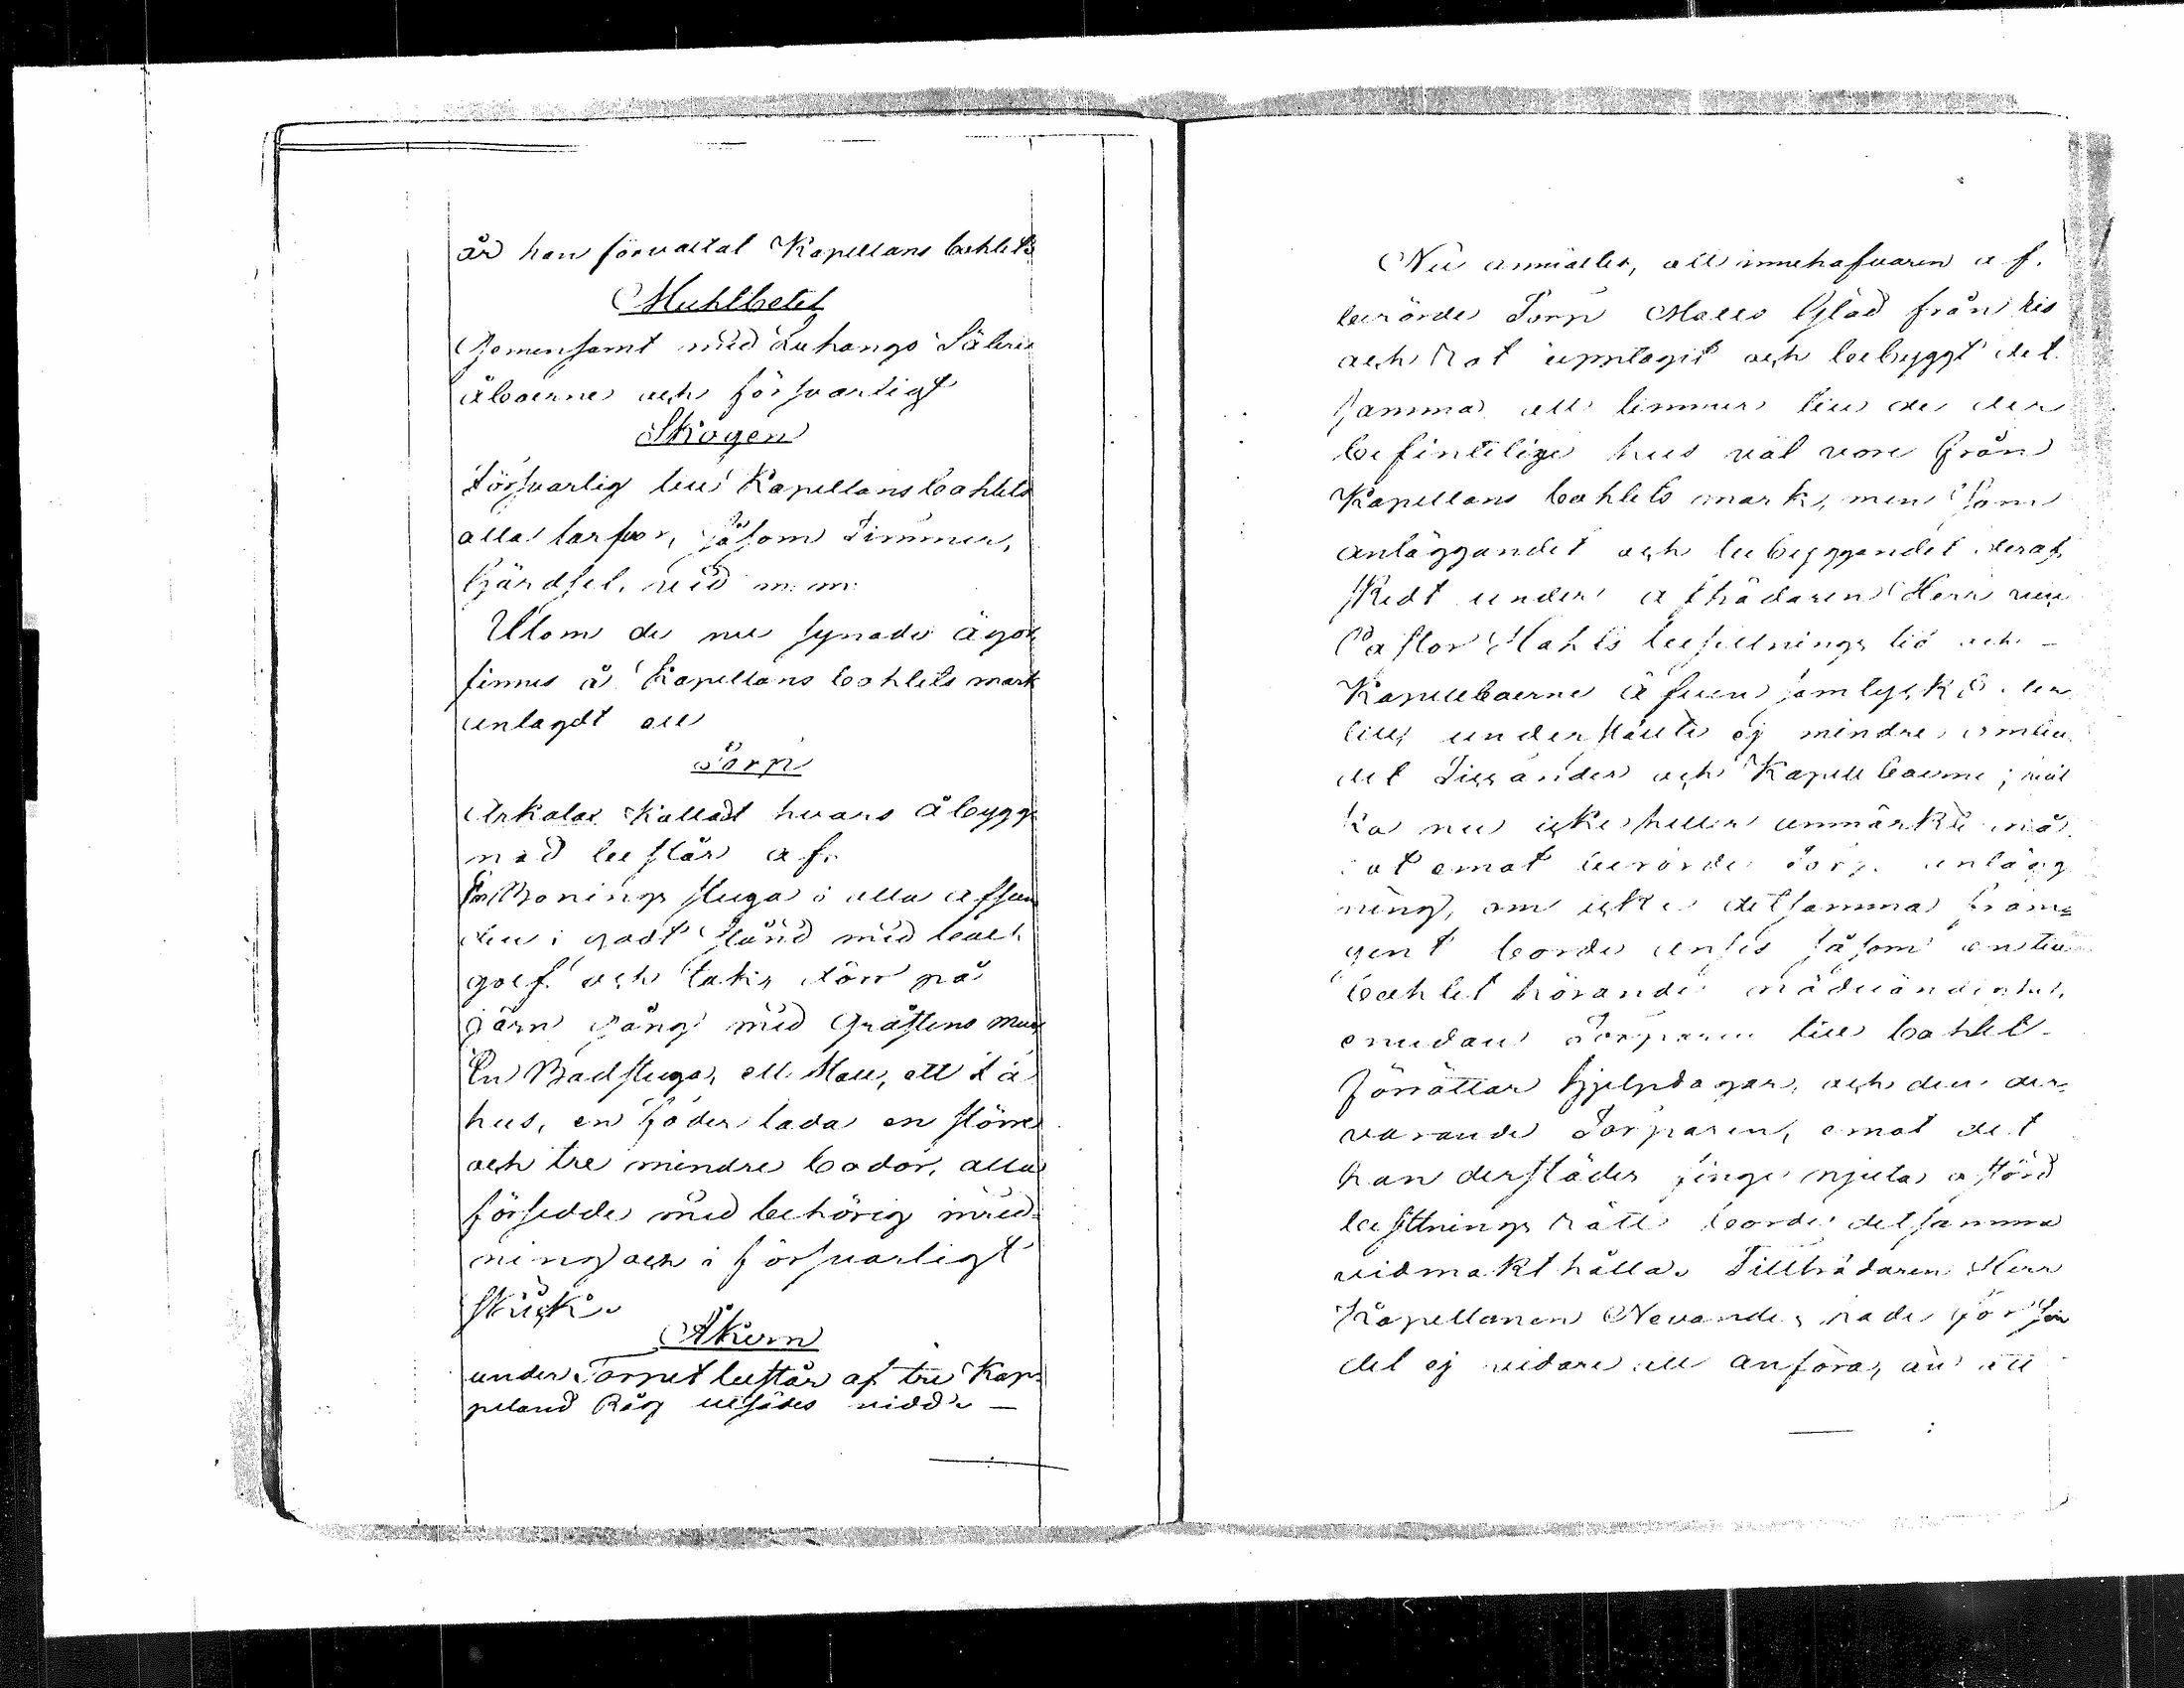 är han förvaltat Kapellans bohlets
Muhlbetet
Gemensamt med Luhango Säteri
åboerne och försvarligt
Skogen
Försvarlig till Kapellansbohlets
alla tarfvor, såsom Timmer,
Gärdsel, ved m: m:
Utom de nu synade ägor
finnes å Kapellans bohlets mark
anlagdt ett
Torp
Arkala kalladt hvars åbygg
nad består af.
En Bonings stuga i alla afseen
den i godt stånd med
golf och tak, dörr på
järn gång med Gråstens mur
En Badstuga, ett Stall, ett Fä
hus, en foder lada en större
och tre mindre bodor, alla
försedde med behörig inred
ning och i försvarligt
skick.
Åkern
under Torpet består af tre Kap
peland Råg utsädes vidd. —
Nu anmältes, att innehafvaren af
berörde Torp Matts Glad från ris
och rot upptagit och bebyggt det
samma att timmer till de der
befintelige hus väl vore från
Kapellans bohlets mark, men som
anläggandet och bebyggandet deraf
skedt under afträdaren Herr vice
Pastor Stahls besittnings tid och —
Kapellboerne äfven samtyckt der
till, understäute ej mindre
det Tillträder och Kapellboerne;
ka nu icke heller anmärkte nå
got emot berörde Torp anlägg
ning, om icke detsamma fram
gent borde anses såsom en till
bohlet hörande nödvändighet,
emedan Torparen till bohlet
förrättar hjelpdagar, och den der
varande Torparen, emot det
han derstädes finge njuta ostörd
besittnings rätt borde detsamma
vidmakthålla. Tillträdaren Herr
Kapellanen Nevander hade för sin
del ej vidare att anföra, än att